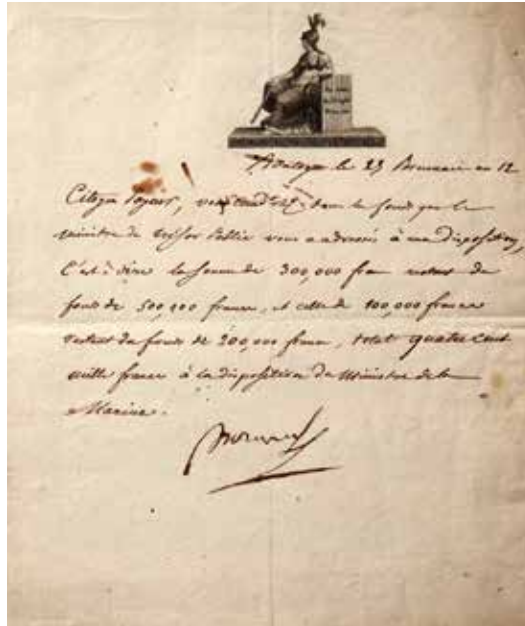 Boulogne le 23 Brumaire an 12
Citoyen Payeur, vous tiendrez dans les fonds que le
ministre du trésor Public vous a adressés à ma disposition,
C'est à dire la somme de 300,000 fran restant du
fonds de 500,000 francs, et celle de 100,000 francs
restant du fonds de 200,000 francs, total quatre cent
mille francs à la disposition du Ministre de la
Marine.